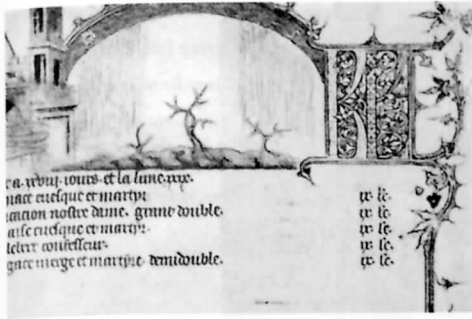 KL
r a. xxviij. iours. et la lune. xxix.
nace euesque et martyr ix. lc.
cacion nostre dame. grant double. ix. lc.
aise euesque et martyr. ix. lc.
confesseur. ix. lc.
gace vierge et martyre. demidouble. ix. lc.